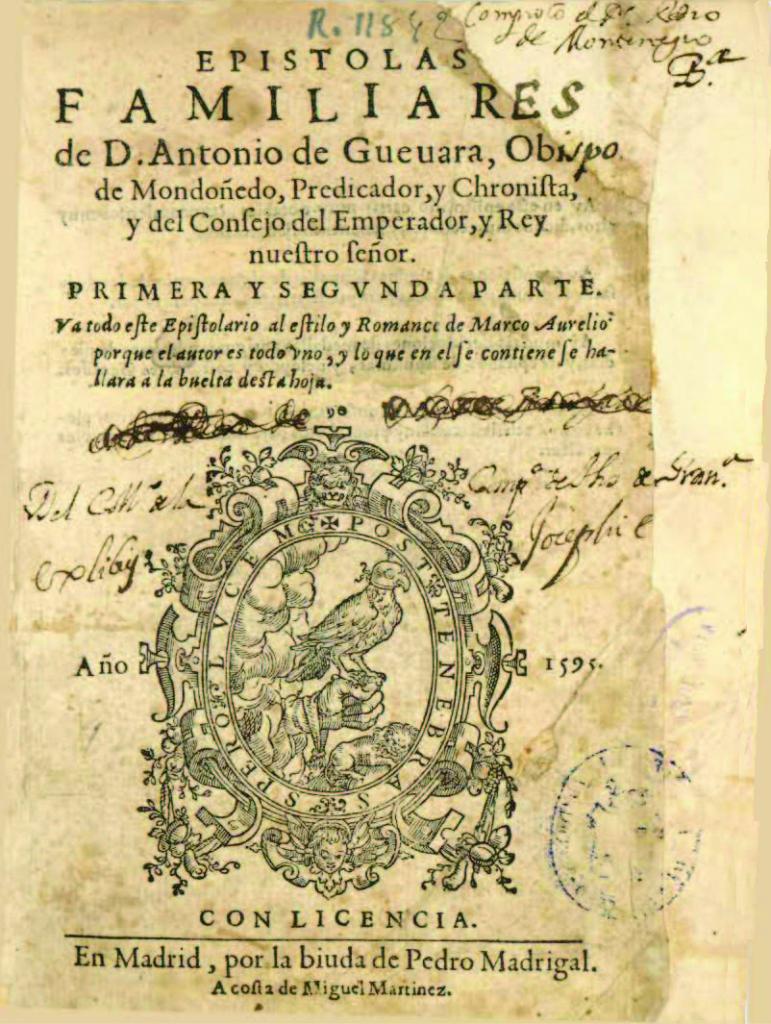 R. 118
Compròlo el Pe. Pedro
de Montenegro
Bª
EPISTOLAS
FAMILIARES
de D. Antonio de Gueuara, Obispo
de Mondoñedo, Predicador, y Chroniſta,
y del Conſejo del Emperador, y Rey
nueſtro ſeñor.
PRIMERA Y SEGVNDA PARTE.
Va todo eſte Epiſtolario al eſtilo y Romance de Marco Aurelio
porque el autor es todo vno, y lo que en el ſe contiene ſe ha-
llara a la buelta deſta hoja.
Del de la Compª de Granª
Josephi
POST TENEBRAS SPERO LVCEM
Año 1595.
CON LICENCIA.
En Madrid, por la biuda de Pedro Madrigal.
A coſta de Miguel Martinez.